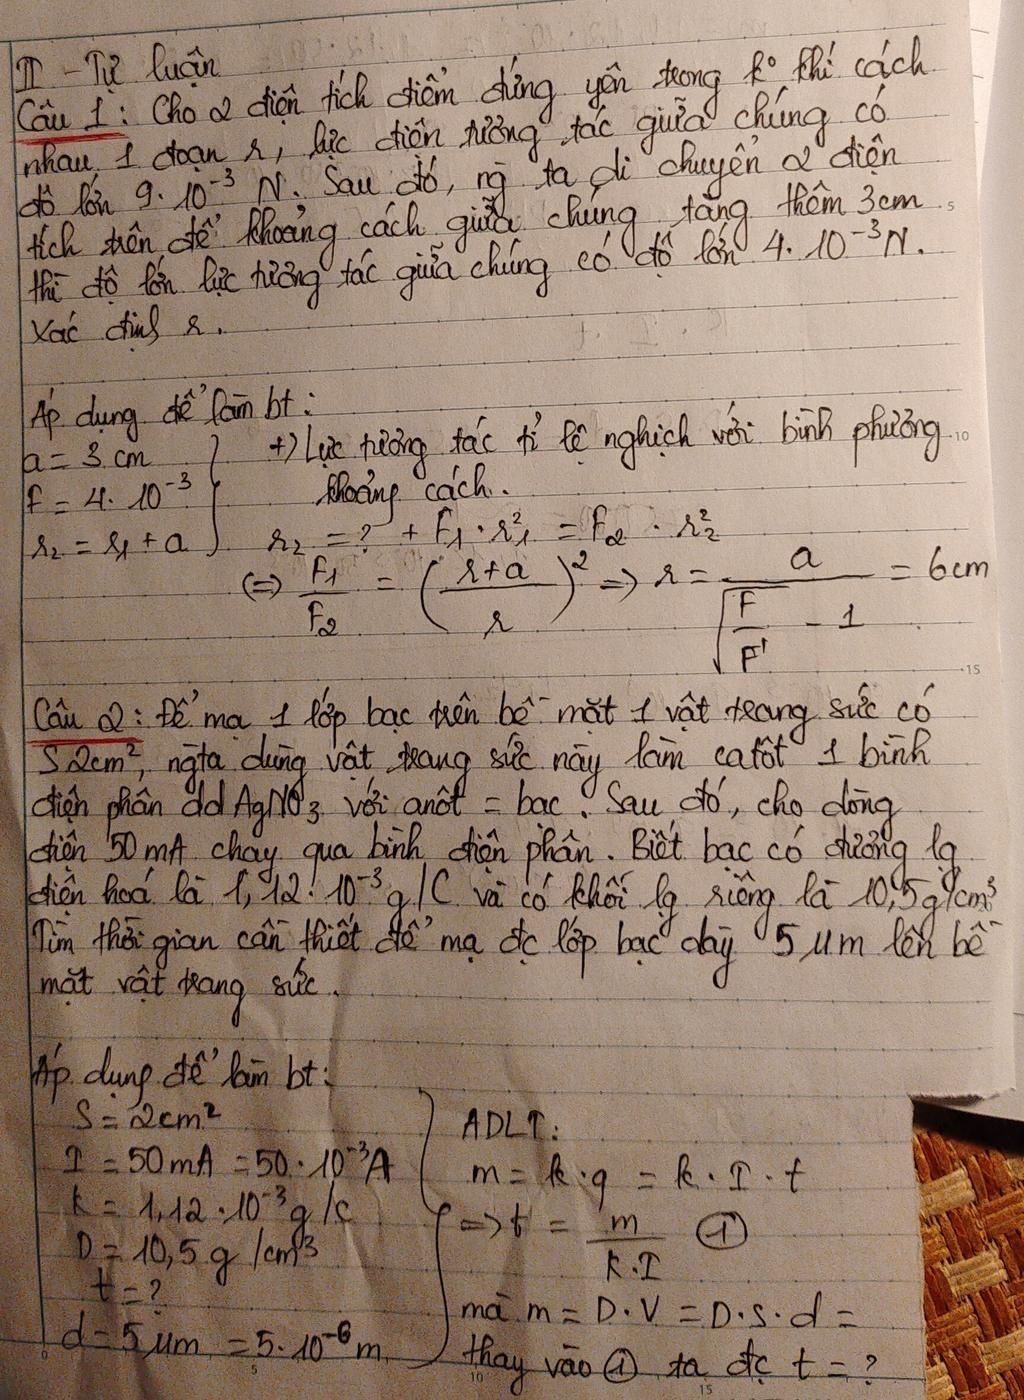 II - Tự luận
Câu 1: Cho 2 điện tích điểm đứng yên trong k° khí cách
nhau 1 đoạn r, lực điện tương tác giữa chúng có
độ lớn 9·10⁻³ N. Sau đó, ng ta di chuyển 2 điện
tích trên để khoảng cách giữa chúng tăng thêm 3cm
thì độ lớn lực tương tác giữa chúng có độ lớn 4·10⁻³N.
Xác định r.
Áp dụng để làm bt:
a = 3 cm
F = 4·10⁻³
r₂ = r₁ + a
+) Lực tương tác tỉ lệ nghịch với bình phương
khoảng cách.
r₂ = ? + F₁·r₁² = F₂·r₂²
(=) F₁/F₂ = ((r+a)/r)² => r = a/(√(F/F') - 1) = 6cm
Câu 2: Để mạ 1 lớp bạc trên bề mặt 1 vật trang sức có
S 2cm², ngta dùng vật trang sức này làm catôt 1 bình
điện phân dd AgNO₃ với anôt = bạc. Sau đó, cho dòng
điện 50mA chạy qua bình điện phân. Biết bạc có đương lg
điện hoá là 1,12·10⁻³g/C và có khối lg riêng là 10,5g/cm³
Tìm thời gian cần thiết để mạ đc lớp bạc dày 5 μm lên bề
mặt vật trang sức.
Áp dụng để làm bt:
S = 2cm²
I = 50mA = 50·10⁻³A
k = 1,12·10⁻³g/C
D = 10,5 g/cm³
t = ?
d = 5 μm = 5·10⁻⁶ m
ADLT:
m = k·q = k·I·t
=> t = m/(k·I) ①
mà m = D·V = D·S·d =
thay vào ① ta đc t = ?
5
10
15
0
5
10
15